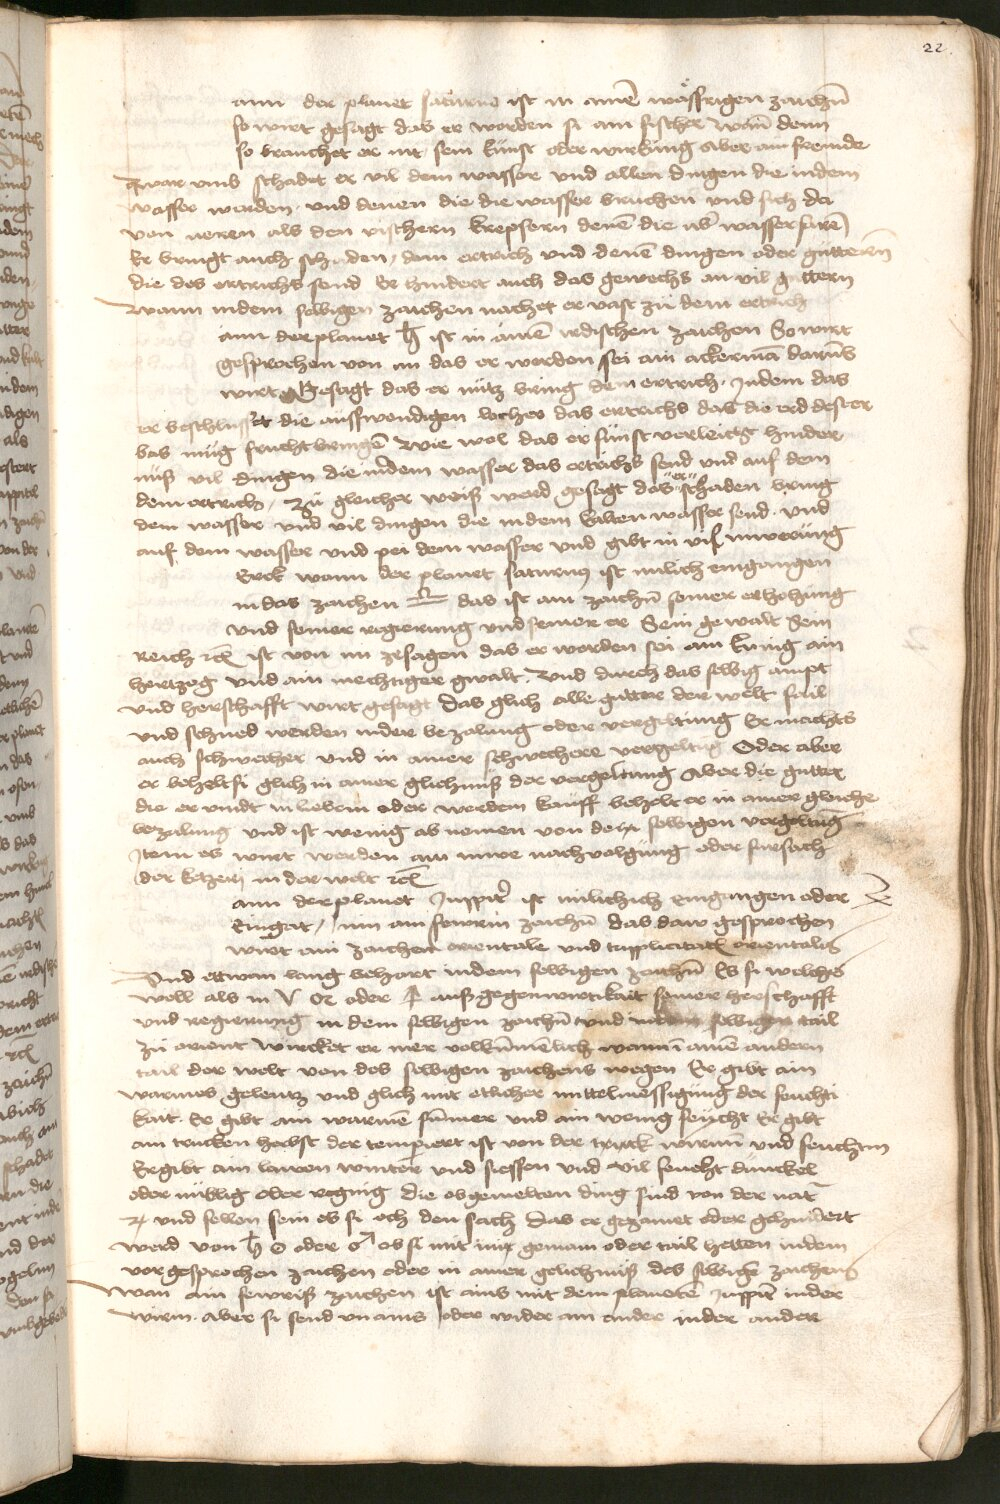 22.
ann der planet saturnus ist in ainē wässrigen zaichn̄
so wirt gesagt das er worden si ain fischer Wan̄ denn
so brauchet er nit sein künst oder wirkung Aber ain fremde
zwar vmb schadet er vil dem wasser vnd allen dingen die indem
wasser werden. vnd denen die die wasser bruchen vnd sich da
von neren als den vischern krepsern denē die vb' wasser farē
Er bringt auch schaden, dem ertrich vnd denē dingen oder güttern
die des ertrichs send Er hindert auch das gewechs an vil guttern
Wann indem selbigen zaichen nachet er vast zu dem ertrich
ann der planet ♄ ist in ainē irdischen zaichen So wirt
gesprochen von im das er worden sei ain ackerman̄ darumb
wirt Gesagt das er nütz bring dem ertrich. Indem das
er beschlusset die ausswendigen locher des ertrichs das die erd dester
bas mug frucht bringē Wie wol das er sunst verleicht hinder
nuß vil dingen die indem wasser des ertrichs send vnd auf dem
dem ertrich, Zu gleicher weiß werd gesagt das er schaden bring
dem wasser vnd vil dingen die indem kalten wasser send. vnd
auf dem wasser vnd pei dem wasser vnd gibt in vil
Merk wann der planet saturnus ist nulich eingangen
in das zaichen ♎ das ist ain zaichn̄ seiner erhohung
vnd seiner regierung vnd seiner er Sein gewalt Sein
Reich ist von im zesagen das er worden sei ain kunig ain
hertzog vnd ain mechtiger gwalt. Vnd durch das selbig ampt
vnd herschafft wirt gesagt das glich alle gutter der welt fail
vnd schned werden inder bezalung oder vergeltung Er machts
auch schwecher vnd in ainer schwechere vergeltung Oder aber
er behelt si glich in ainer glichnuß der vergeltung Aber die gutter
die er vindt in liebem oder werdem kauff behelt er in ainer gleiche
bezalung vnd ist wenig ab nemen von der selbigen vergeltung
Item es wirt werden ain nuwe nachvolgung oder sursach
der ketzeri in der welt
ann der planet Juppiter ist nulichich Eingangen oder
Eingat, inn ain fewrin zaichn̄ das daw gesprochen
wirt ain zaichen orientale vnd triplicitatis orientalis
Vnd ettwan lang behart indem selbigen zaichn̄ Es si welchs
woll als in ♈ ♌ oder ♐ auß gegenwirtikait seiner herschafft
vnd regierung in dem selbigen zaichn̄ vnd indem selbigen tail
zu orient wurcket er mer volkummēlich wann ī ainē andern
tail der welt von des selbigen zaichens wegen Er gibt ain
warmes gelentz vnd glich mit etlicher mittelmessigung der feuchti
kait. Er gibt ain warmē sumer vnd ain wenig feucht Er gibt
ain trucken herbst der temperiert ist von der truck wirm vnd feuchtin
Er gibt ain lawen winter vnd siessen vnd vil feucht dunckel
oder niblig oder regnig die obgemelten ding sind von der nat'
♃ vnd sollen sein es si och den sach das er gezamet oder gehindert
werd von ♄ ☉ oder ♂ ob si mit im gemain oder tail hetten indem
vorgesprochen zaichen oder in ainer gelichnuß des selbigē zaichens
Wan ain fewriß zaichen ist ains mit dem planetē Juppiter inder
Wirm. aber si send vnains oder wider ain ander inder ander